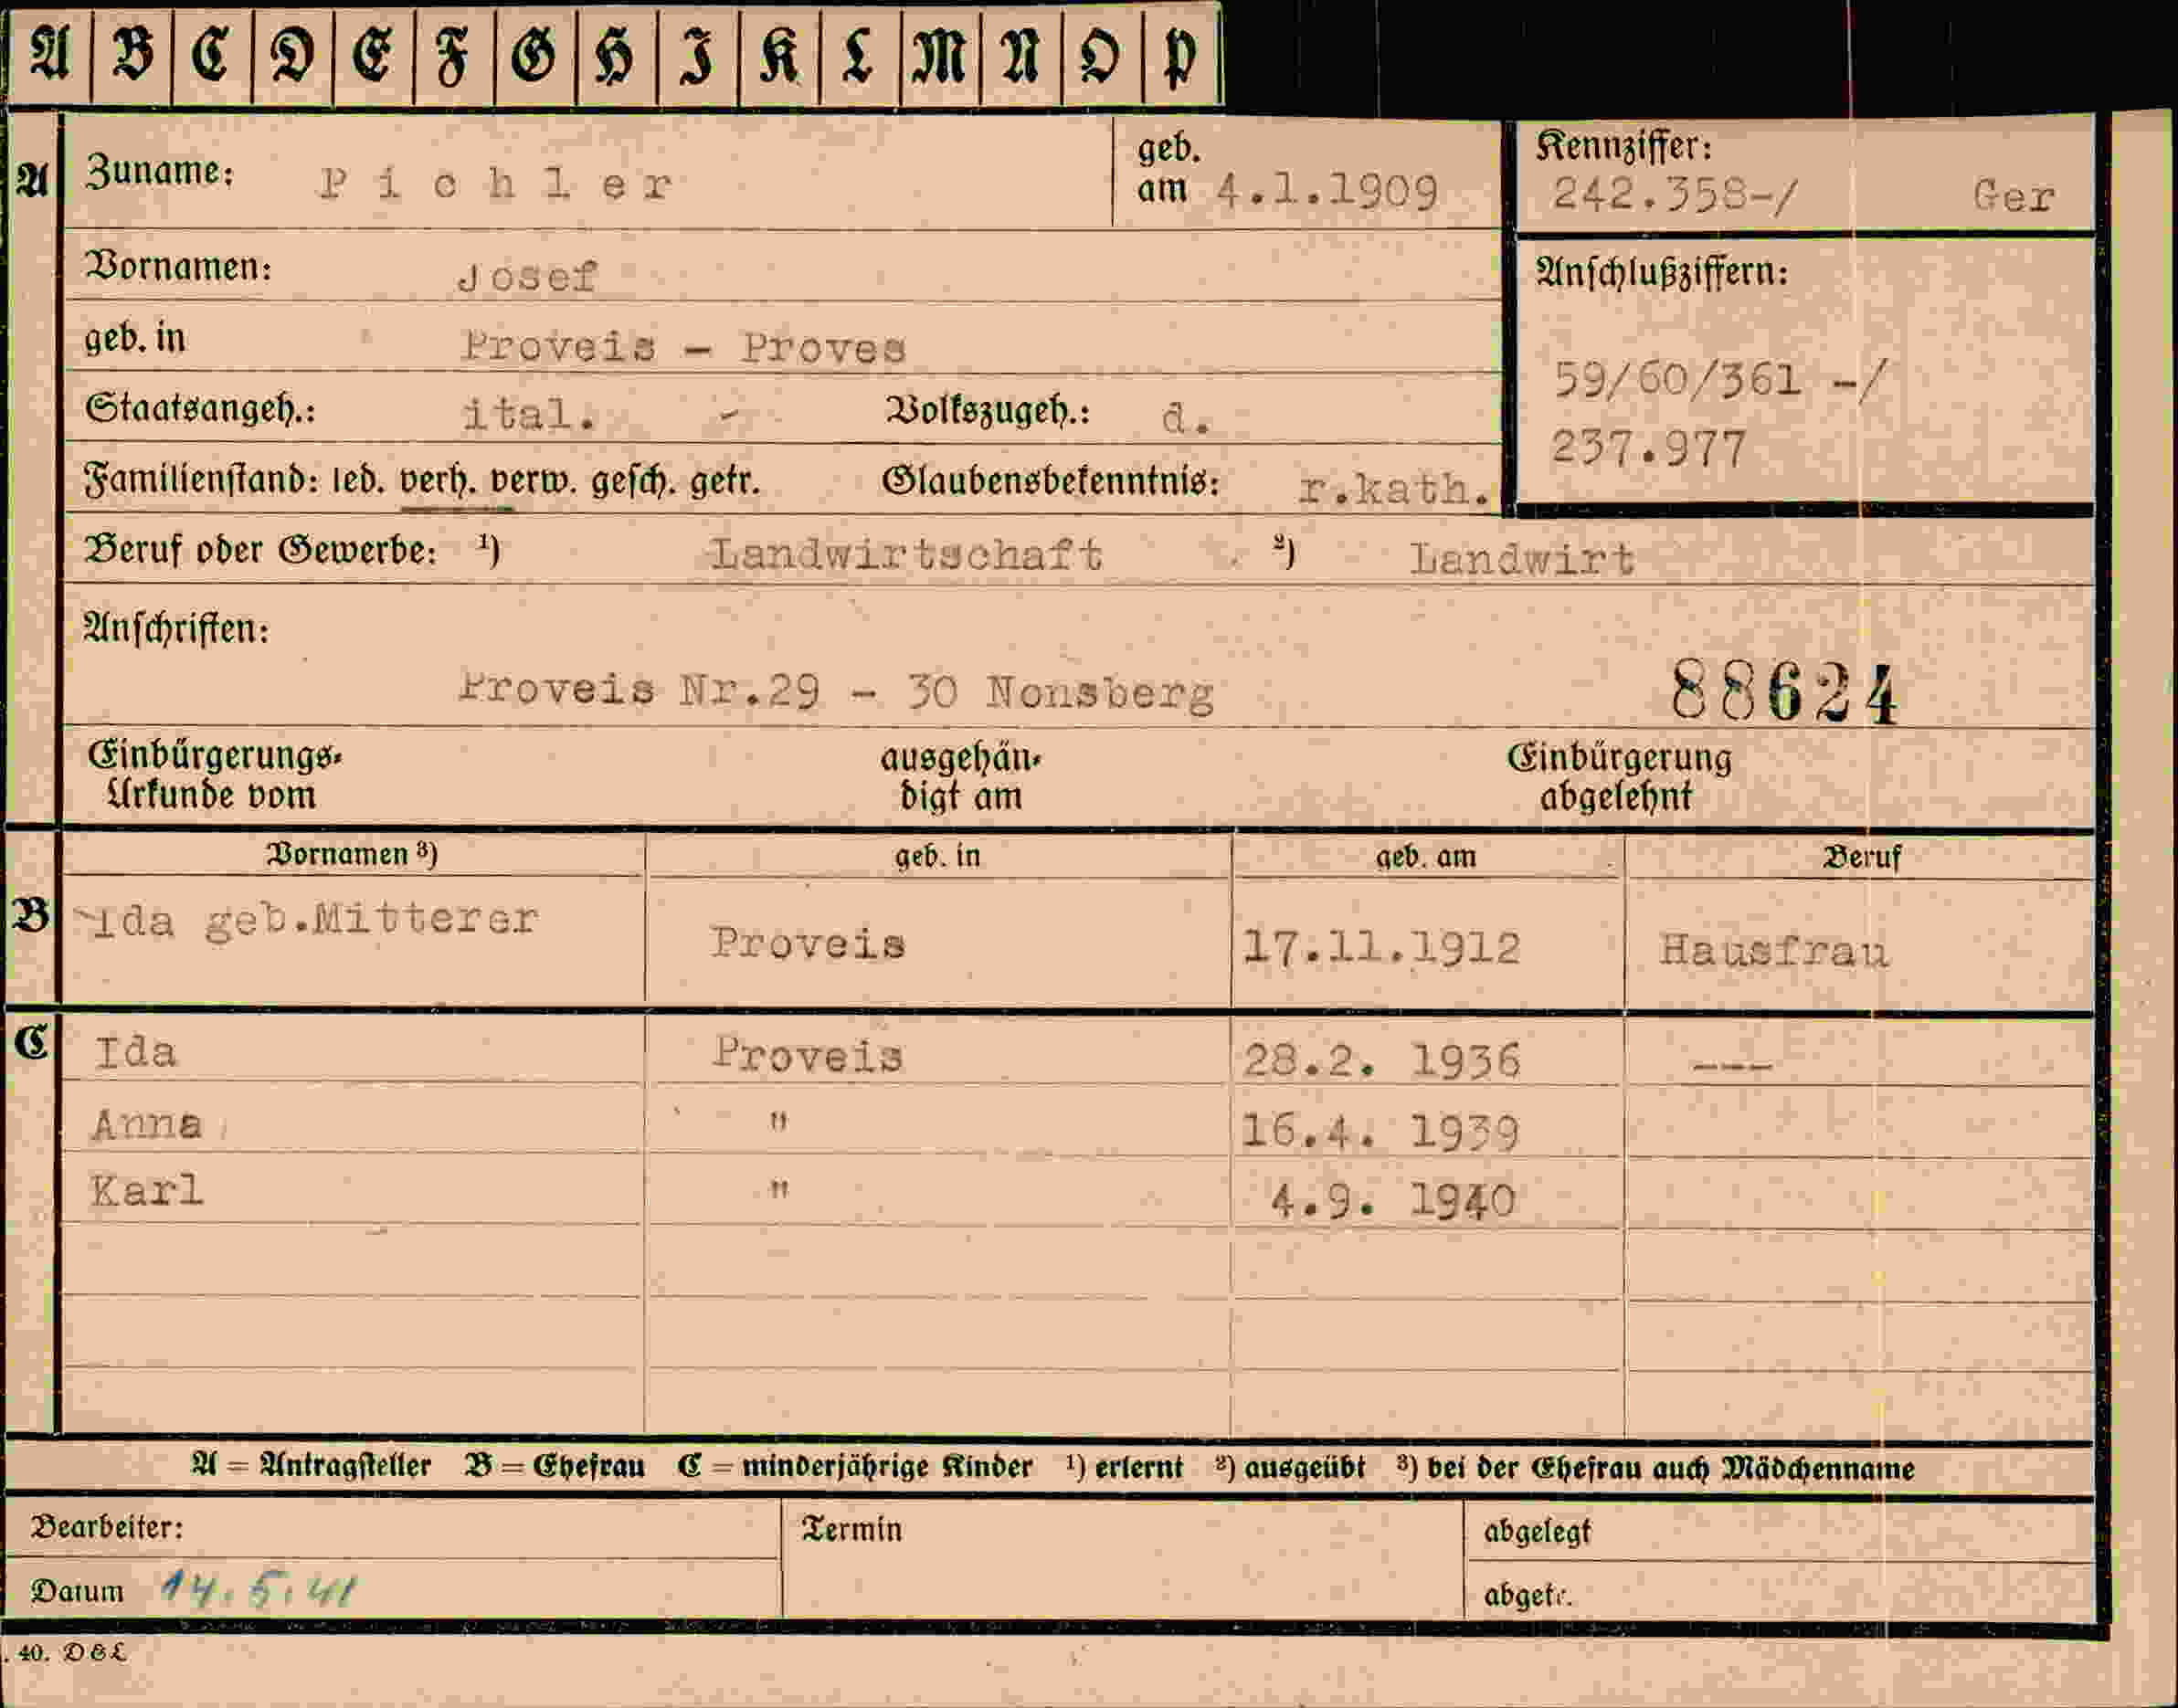 A B C D E F G H I K L M N O P
A Zuname: Pichler geb. am 4.1.1909 Kennziffer: 242.358-/ Ger
Vornamen: Josef Anschlußziffern:
geb. in Proveis - Proves 59/60/361 -/
Staatsangeh.: ital. - Volkszugeh.: d. 237.977
Familienstand: led. verh. verw. gesch. getr. Glaubensbekenntnis: r.kath.
Beruf oder Gewerbe: ¹) Landwirtschaft ²) Landwirt
Anschriften:
Proveis Nr.29 - 30 Nonsberg 88624
Einbürgerungs- ausgehän- Einbürgerung
Urkunde vom digt am abgelehnt
Vornamen ³) geb. in geb. am Beruf
B Ida geb.Mitterer Proveis 17.11.1912 Hausfrau
C Ida Proveis 28.2. 1936 ---
Anna " 16.4. 1939
Karl " 4.9. 1940
A = Antragsteller B = Ehefrau C = minderjährige Kinder ¹) erlernt ²) ausgeübt ³) bei der Ehefrau auch Mädchenname
Bearbeiter: Termin abgelegt
Datum 14.5.41 abgetr.
. 40. D&L